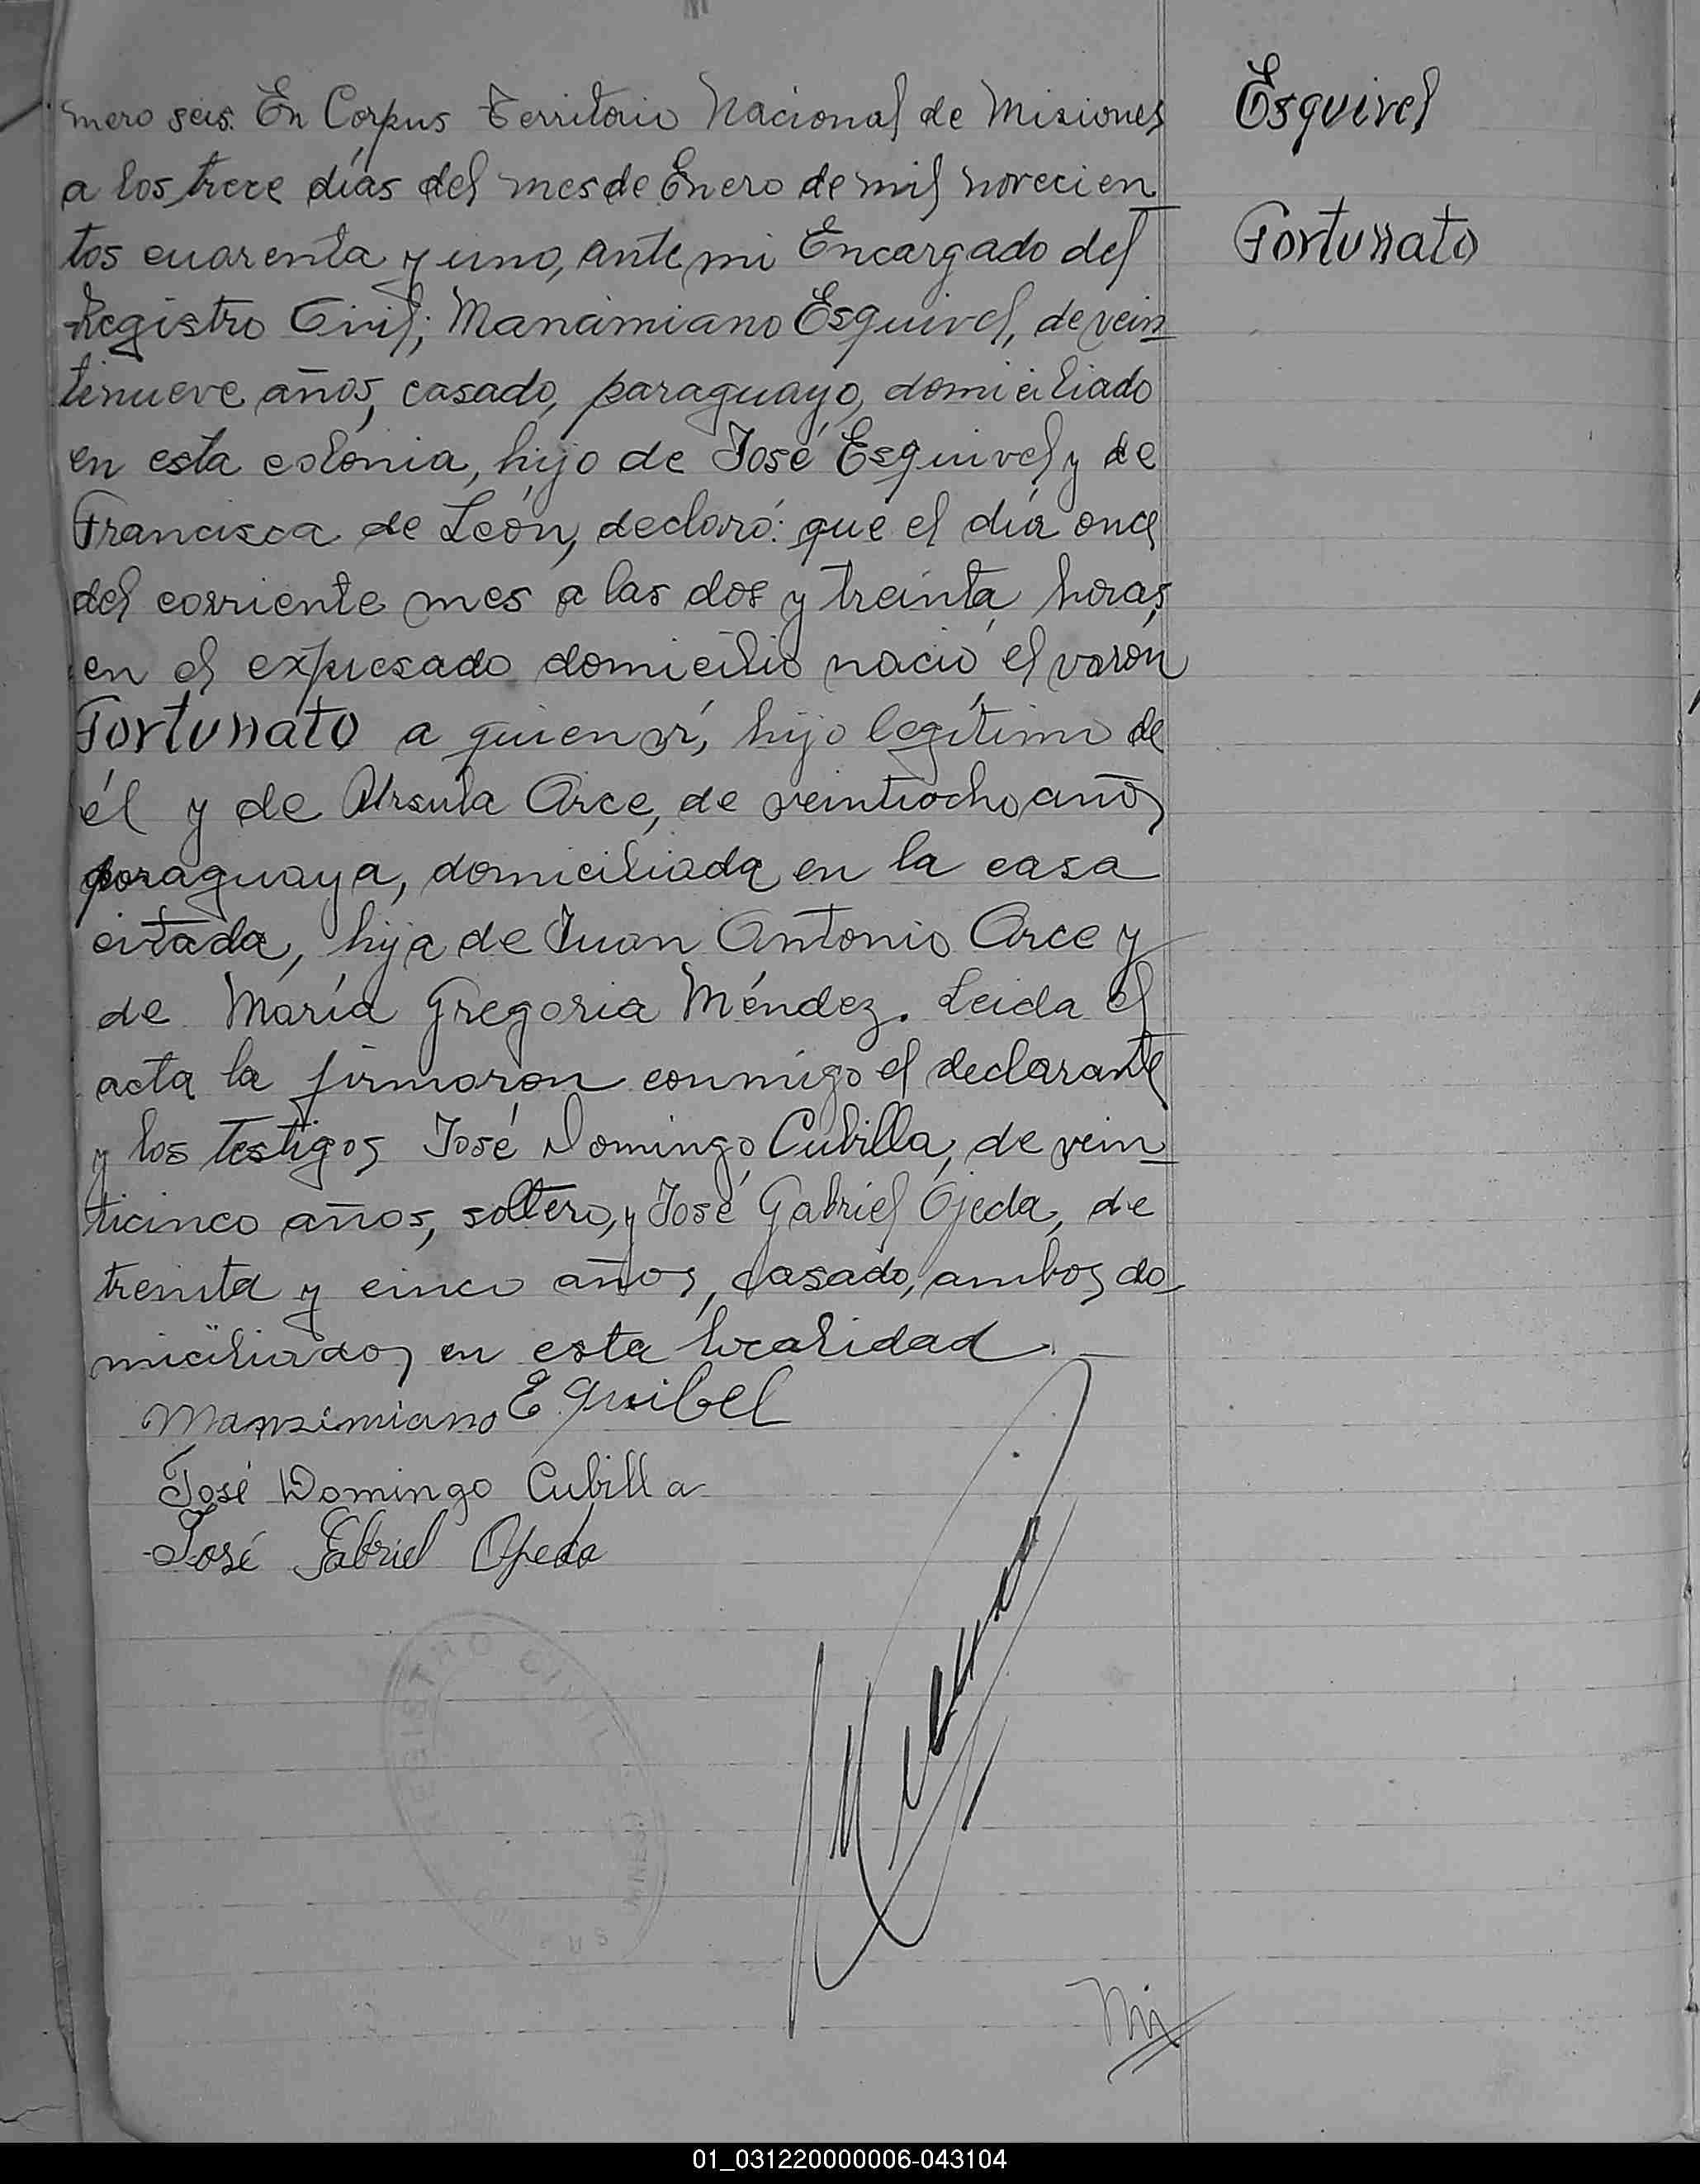 mero seis. En Corpus Territorio Nacional de Misiones
a los trece días del mes de Enero de mil novecien
tos cuarenta y uno, ante mi Encargado del
Registro Civil; Manamiano Esquivel, de vein
tinueve años, casado, paraguayo, domiciliado
en esta colonia, hijo de José Esquivel y de
Francisca de León, declaró: que el día once
del corriente mes a las dos y treinta horas,
en el expresado domicilio nació el varón
Fortunato a quien ví, hijo legítimo de
él y de Ursula Arce, de veintiocho años
paraguaya, domiciliada en la casa
citada, hija de Juan Antonio Arce y
de María Gregoria Méndez. Leida el
acta la firmaron conmigo el declarante
y los testigos José Domingo Cubilla, de vein
ticinco años, soltero, y José Gabriel Ojeda, de
treinta y cinco años, casado, ambos do
miciliados en esta localidad.
Esquivel
Fortunato
Manximiano Equibel
José Domingo Cubilla
José Gabriel Ojeda
REGISTRO CIVIL
01_031220000006-043104